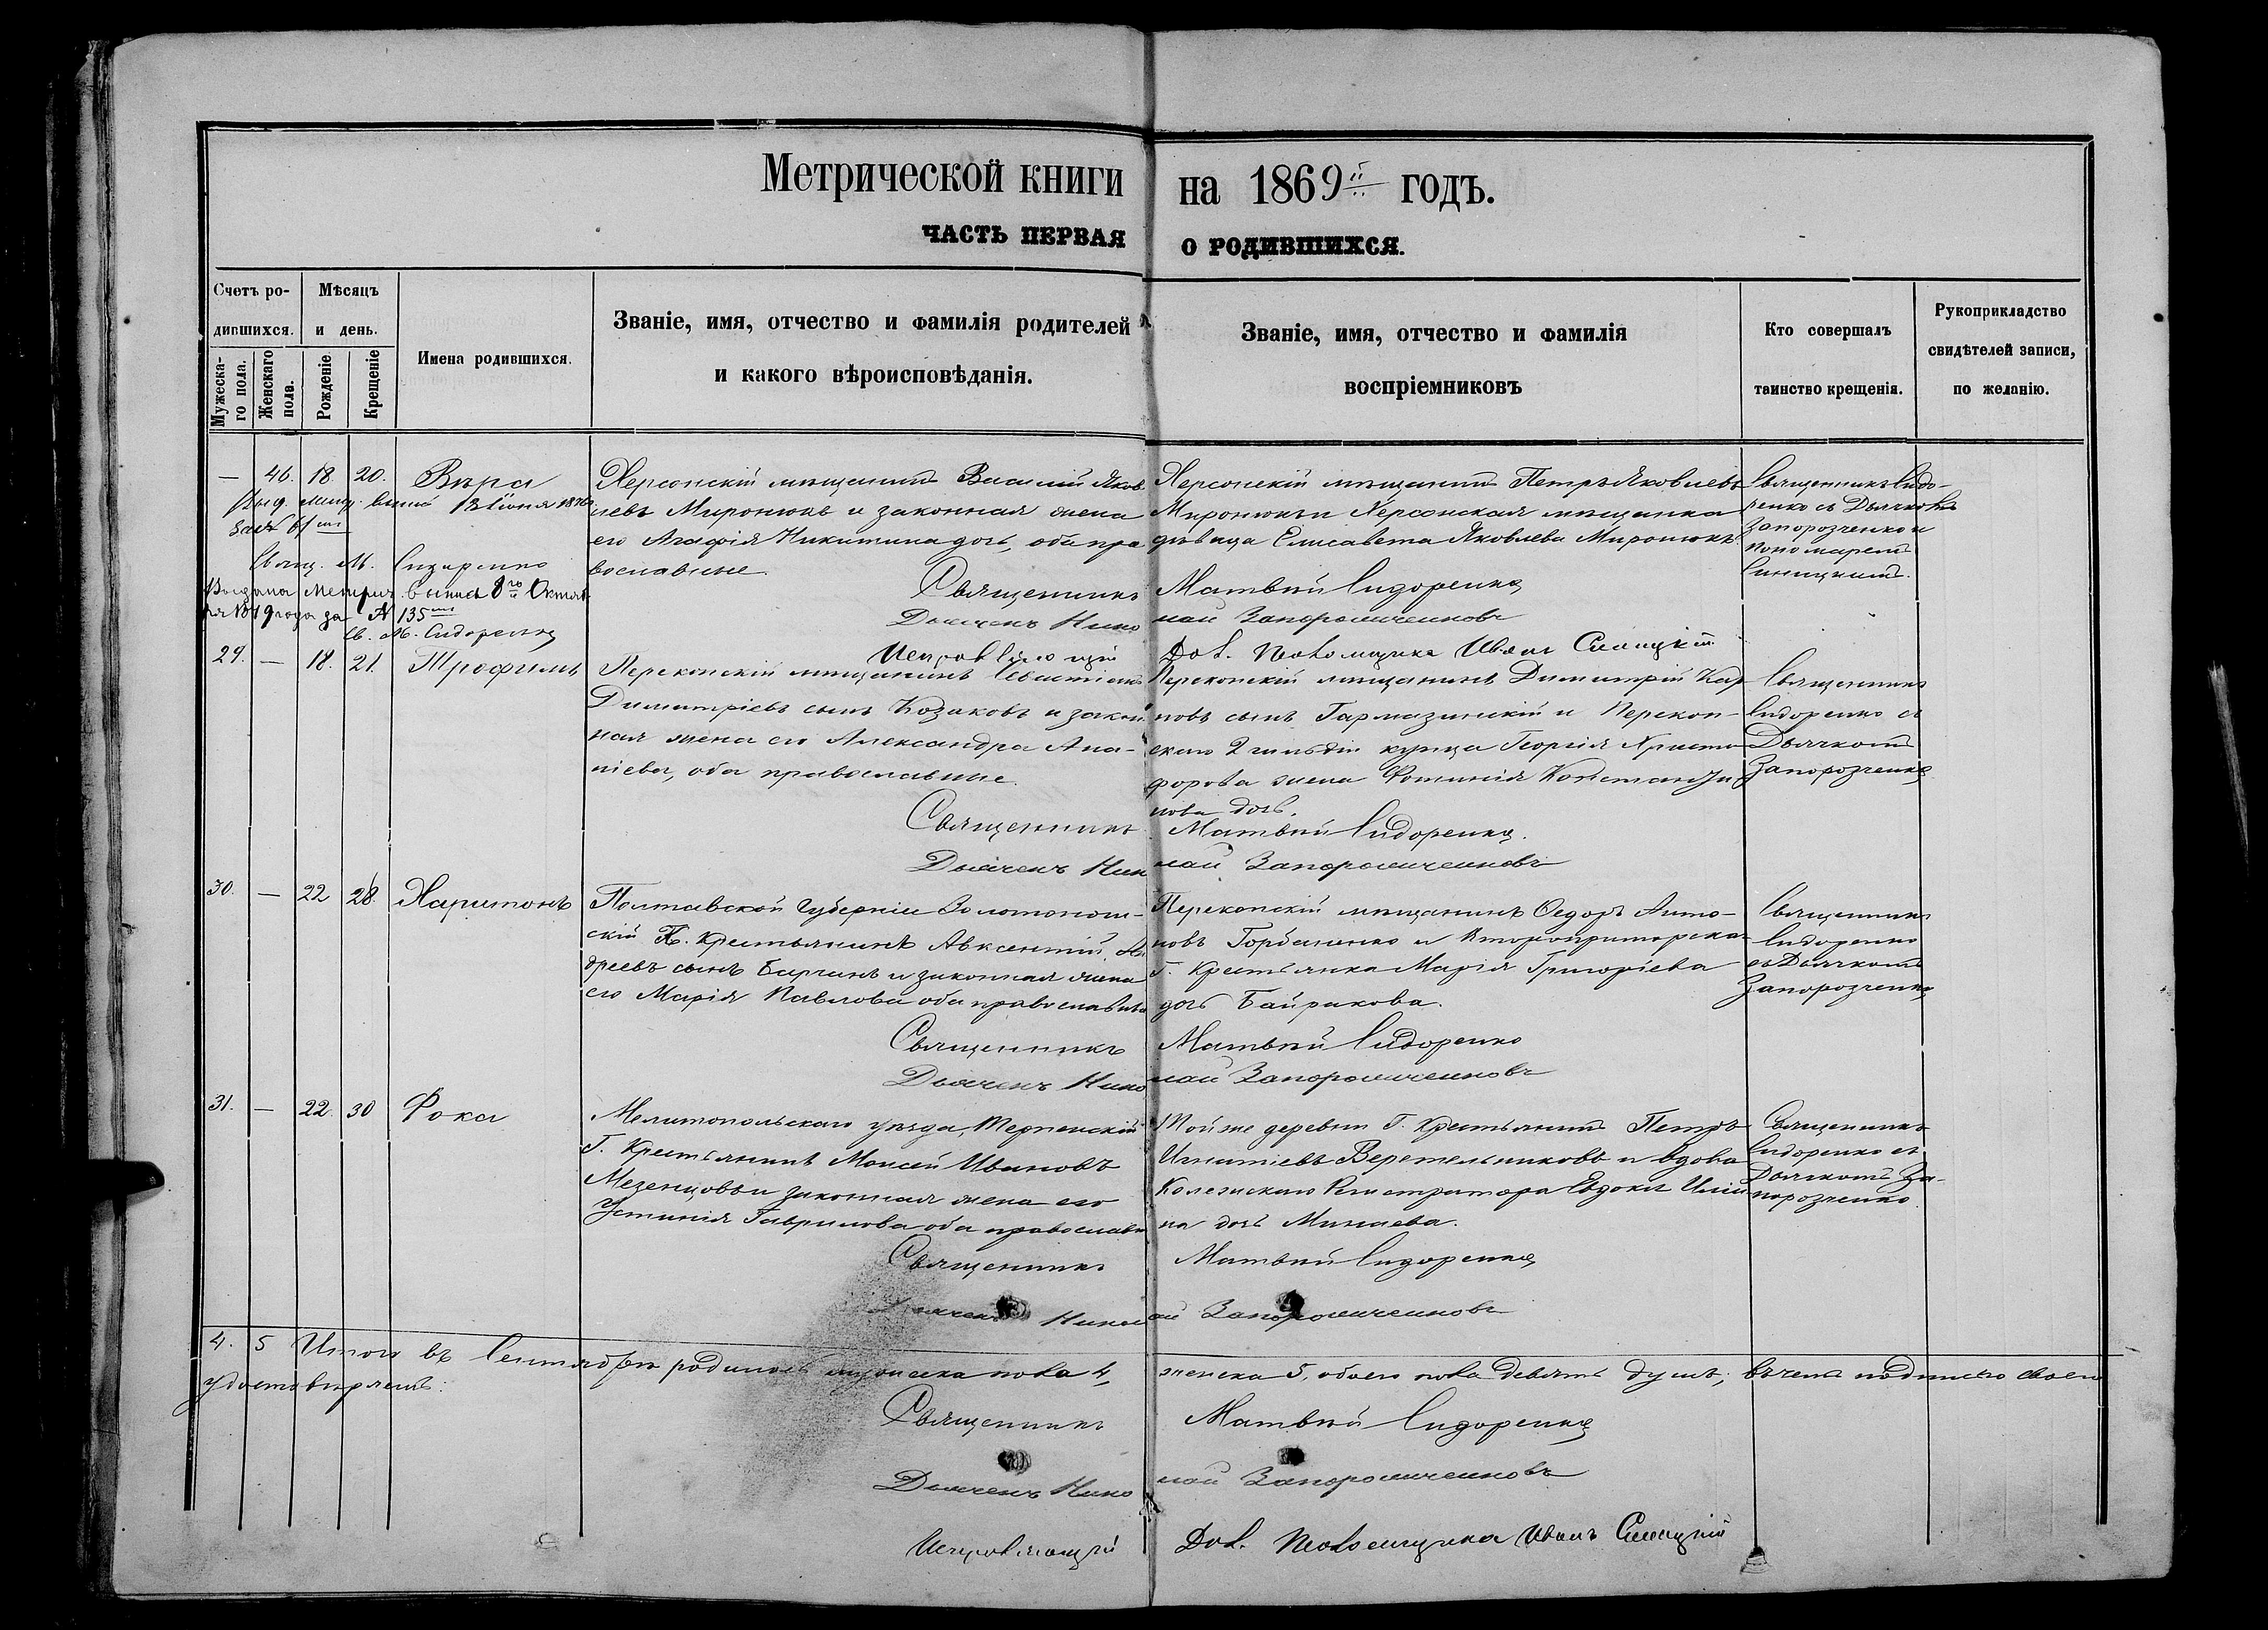 Метрической книги на 1869й годъ.
ЧАСТЬ ПЕРВАЯ О РОДИВШИХСЯ.
Счетъ ро-
дившихся.
Мужеска-
го пола.
Женскаго
пола.
Мѣсяцъ
и день.
Рожденіе
Крещеніе
Имена родившихся.
Званіе, имя, отчество и фамилія родителей
и какого вѣроисповѣданія.
Званіе, имя, отчество и фамилія
воспріемниковъ
Кто совершалъ
таинство крещенія.
Рукоприкладство
свидѣтелей записи,
по желанію.
— 46. 18. 20. Вѣра
13 Іюня 1876
за №
Свящ. М. Сидоренко
Выдана Метрич. выпись 8го Октяб-
ря года за № 135
Св. М. Сидоренко
Херсонскій мѣщанинъ Василій Яков
левъ Миронюкъ и законная жена
его Агафія Никитина дочь, оба пра
вославные.
Херсонскій мѣщанинъ Петръ Яковлевъ
Миронюкъ и Херсонская мѣщанка
дѣвица Елисавета Яковлева Миронюкъ.
Священникъ Сидо-
ренко съ Дьячкомъ
Запорозченко и
пономаремъ
Синицкимъ.
Священникъ Матвѣй Сидоренко
Дьячекъ Николай Запорожченковъ
Исправляющій Дол. Пономщика Иванъ Синицкій
29. — 18. 21. Трофимъ
Перекопскій мѣщанинъ Севастіанъ
Димитріевъ сынъ Козаковъ и закон
ная жена его Александра Ана-
ніева, оба православные.
Перекопскій мѣщанинъ Димитрій Кар
повъ сынъ Гармазинскій и Перекоп-
скаго 2 гильдіи купца Георгія Христо
форова жена Фотинія Константи
нова дочь.
Священникъ
Сидоренко съ
Дьячкомъ
Запорозченко
Священникъ Матвѣй Сидоренко.
Дьячекъ Николай Запорожченковъ
30. — 22 28. Харитонъ
Полтавской Губерніи Золотонош-
скій К. крестьянинъ Авксентій Ан
дреевъ сынъ и законная жена
его Марія Павлова оба православные
Перекопскій мѣщанинъ Ѳедоръ Анто-
новъ Горбаченко и
Г. Крестьянка Марія Григоріева
дочь Байракова.
Священникъ
Сидоренко
съ Дьячкомъ
Запорозченко
Священникъ Матвѣй Сидоренко
Дьячекъ Николай Запорожченковъ
31. — 22. 30 Фока
Мелитопольскаго уѣзда, Терпенскій
Г. Крестьянинъ Моисей Ивановъ
Мезенцовъ и законная жена его
Устинія Гаврилова оба православн
Той же деревни Г. Крестьянинъ Петръ
Игнатіевъ Веретельниковъ и вдова
Колежскаго Регистратора Евдокія Ильи
на дочь Минаева.
Священникъ
Сидоренко съ
Дьячкомъ За-
порозченко
Священникъ Матвѣй Сидоренко
Дьячекъ Николай Запорожченковъ
4. 5 Итого въ Сентябрѣ родилось мужеска пола 4, женска 5, обоего пола девять душъ; въ чемъ подписью своею
удостовѣряемъ:
Священникъ Матвѣй Сидоренко
Дьячекъ Николай Запорожченковъ
Исправляющій Дол. Пономщика Иванъ Синицкій